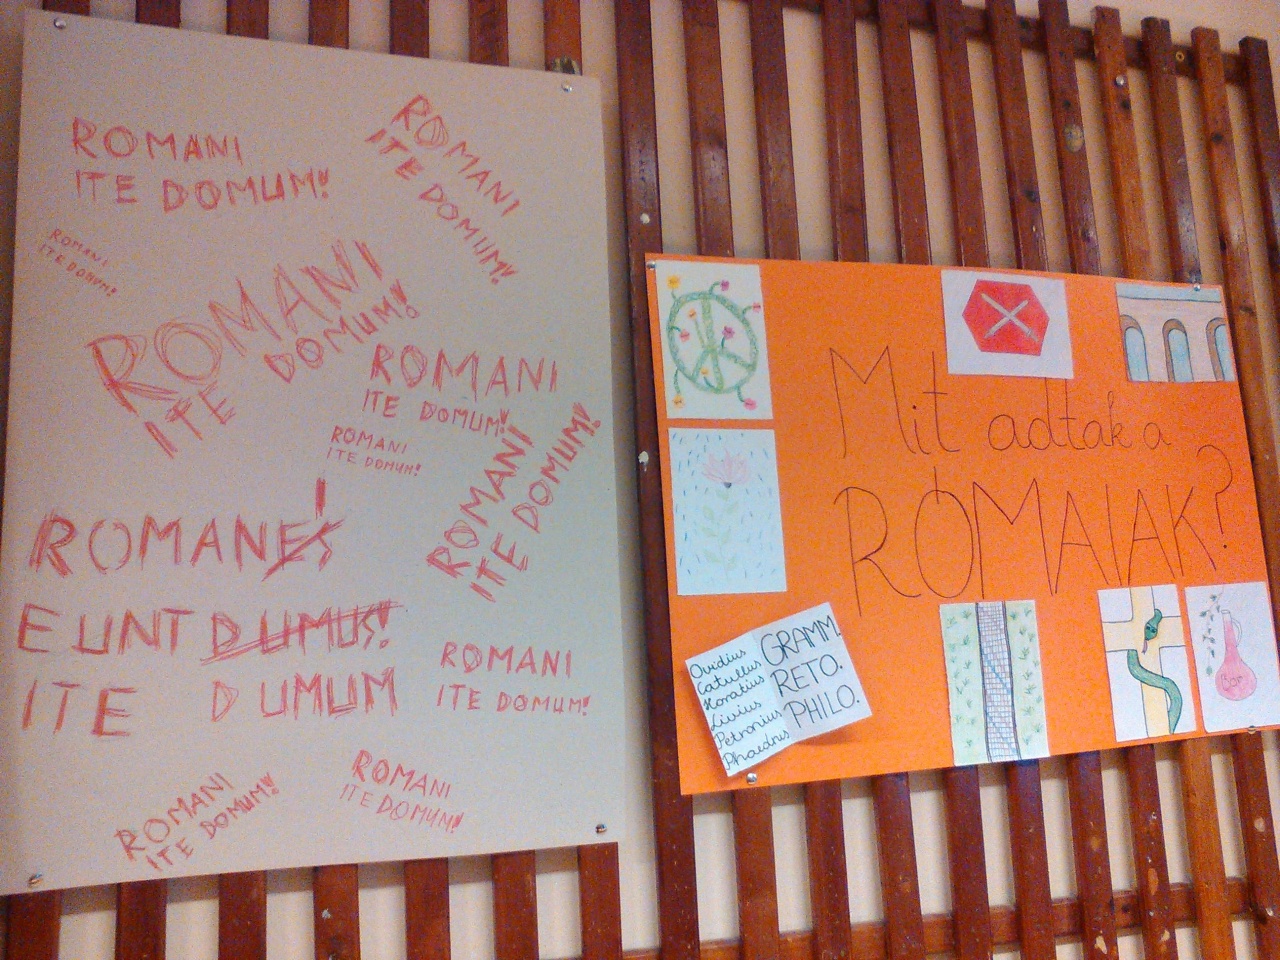 ROMANI
ITE DOMUM!
ROMANI
ITE DOMUM!
ROMANI
ITE DOMUM!
ROMANI
ITE DOMUM!
ROMANI
ITE DOMUM!
ROMANI
ITE DOMUM!
ROMANI
ITE DOMUM!
ROMANES I
EUNT DUMUS!
ITE DUMUM
ROMANI
ITE DOMUM!
ROMANI
ITE DOMUM!
ROMANI
ITE DOMUM!
Mit adtak a
RÓMAIAK?
Ovidius
Catullus
Horatius
Livius
Petronius
Phaedrus
GRAMM.
RETO.
PHILO.
Bor